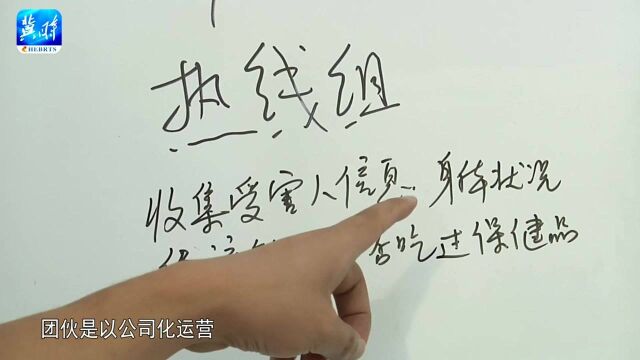 冀时
HEBRTS
热线组
收集受害人信息 身体状况
否吃过保健品
团伙是以公司化运营